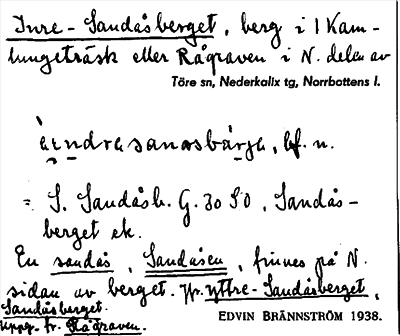 Inre-Sandåsberget, berg i I Kam-
lungeträsk eller Rågraven i N. delen av
Töre sn, Nederkalix tg, Norrbottens l.
bf. n.
= S. Sandåsb. G. 30 SO, Sandås-
berget ek.
En sandås, Sandåsen, finnes på N.
sidan av berget. Jfr. yttre-Sandåsberget,
Sandåsberget.
Uppg. fr. Rågraven.
EDVIN BRÄNNSTRÖM 1938.